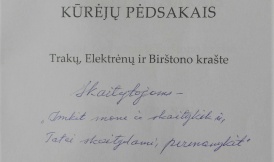 KŪRĖJŲ PĖDSAKAIS
Trakų, Elektrėnų ir Birštono krašte
Skaitytojams –
„Imkit mane ir skaitykit,
Tatai skaitydami, permanykit“